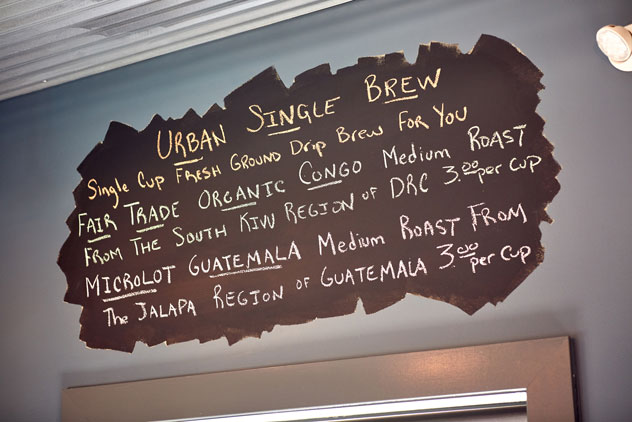 URBAN SINGLE BREW
Single Cup FRESH GROUND Drip Brew FOR YOU
FAIR TRADE ORGANIC CONGO Medium ROAST
FROM THE SOUTH KIVU REGION OF DRC 3.00 per cup
MICROLOT GUATEMALA Medium ROAST FROM
The JALAPA REGION OF GUATEMALA 3.00 per cup